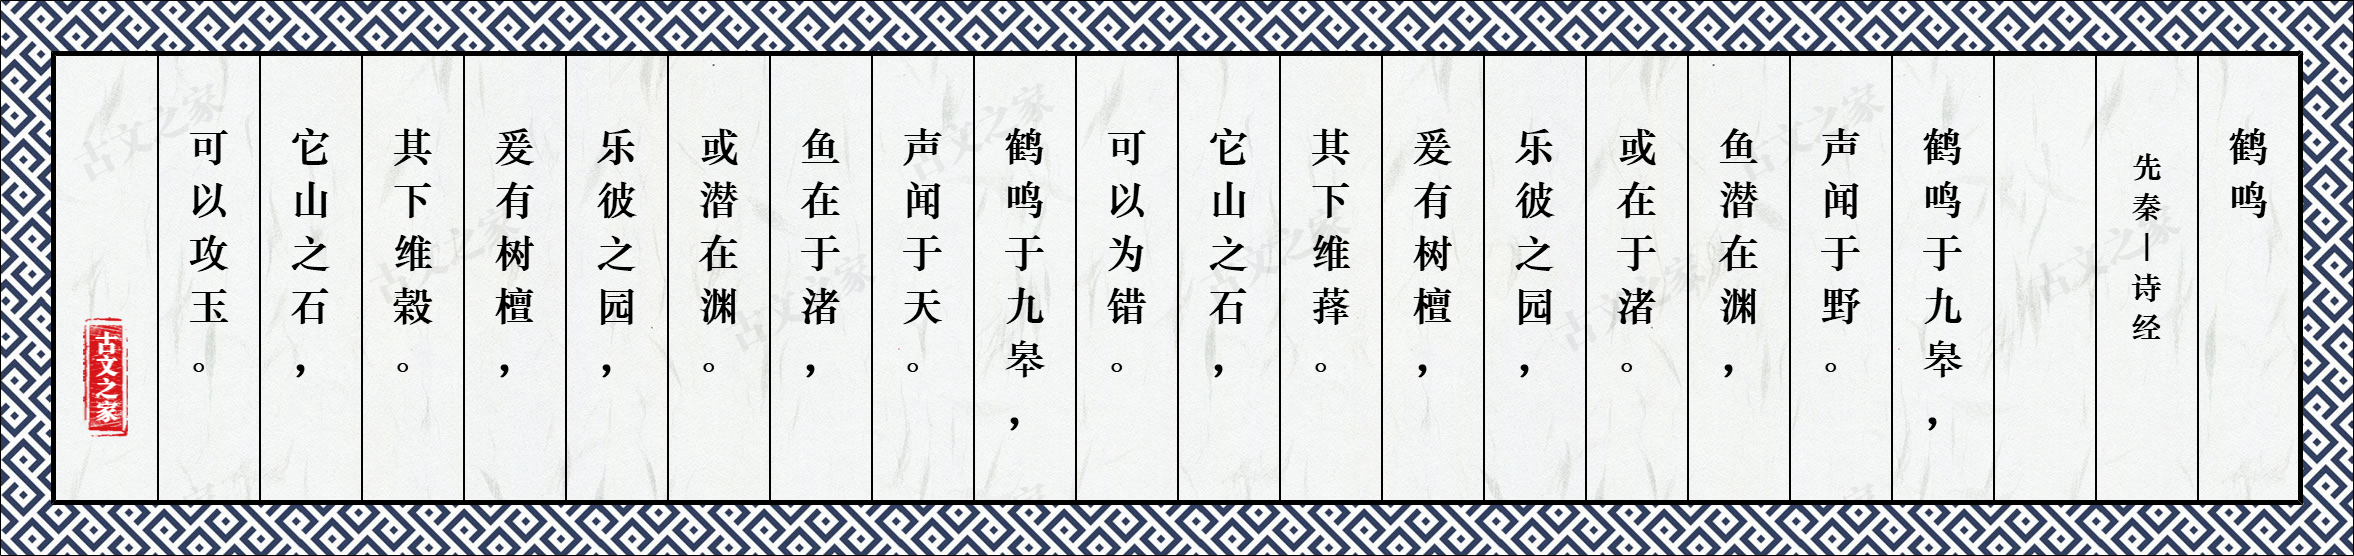 鹤鸣
先秦—诗经
鹤鸣于九皋，
声闻于野。
鱼潜在渊，
或在于渚。
乐彼之园，
爰有树檀，
其下维萚。
它山之石，
可以为错。
鹤鸣于九皋，
声闻于天。
鱼在于渚，
或潜在渊。
乐彼之园，
爰有树檀，
其下维榖。
它山之石，
可以攻玉。
古文之家